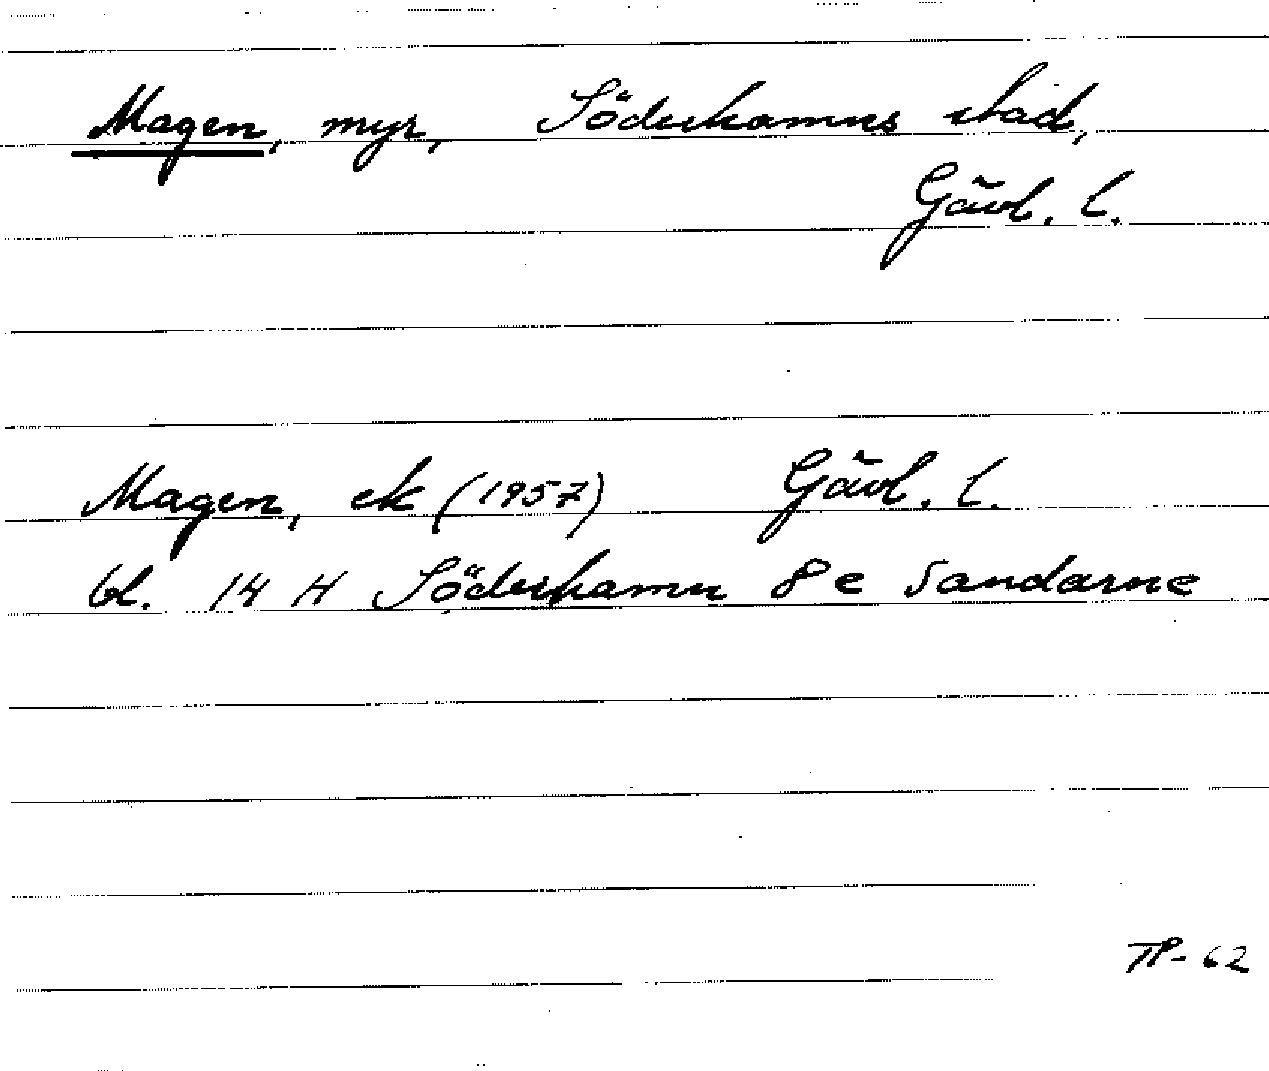 Magen, myr, Söderhamns stad,
Gävl. l.
Magen, ek (1957) Gävl. l.
bl. 14 H Söderhamn 8 e Sandarne
TP-62